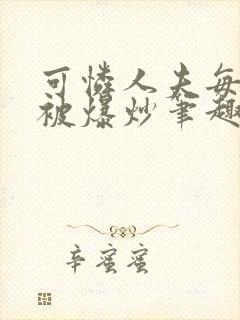 可怜人夫每
被爆炒笔趣
辛蜜蜜